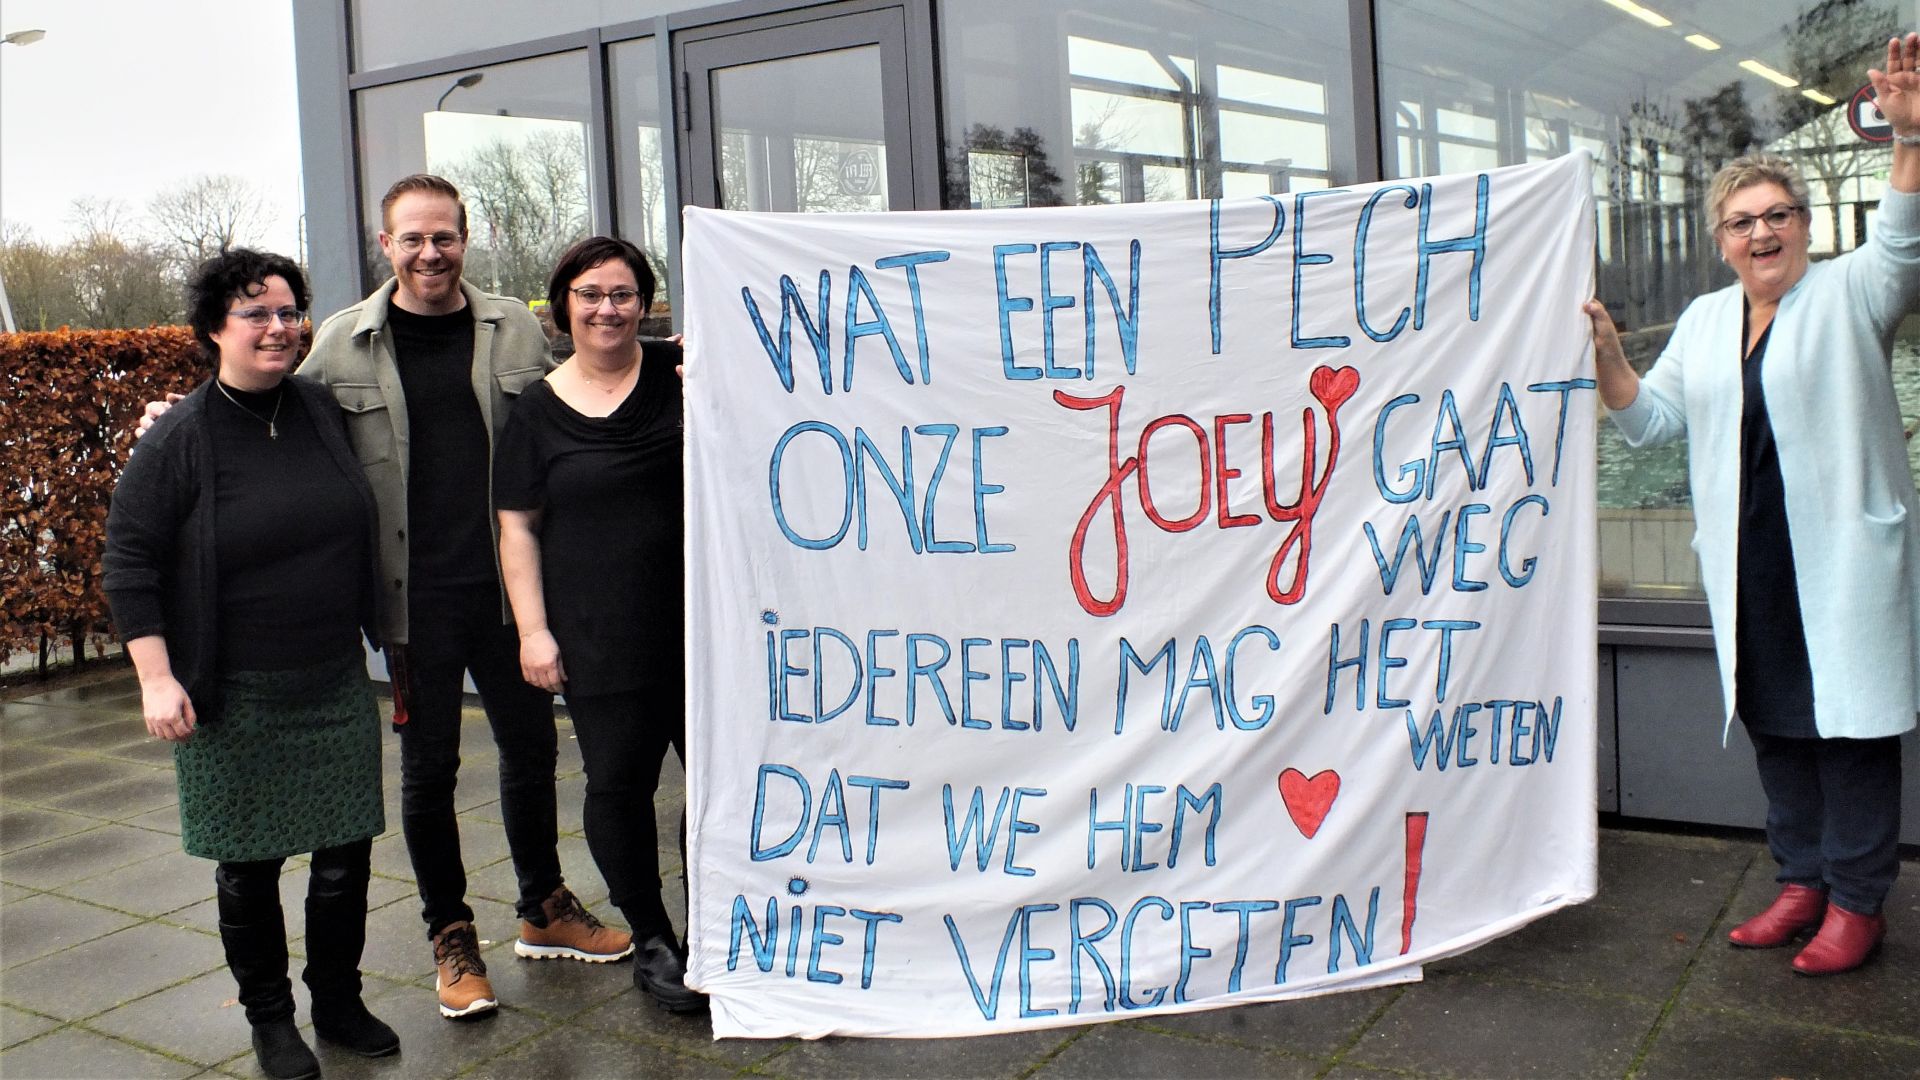 WAT EEN PECH
ONZE JOEY GAAT
WEG
iEDEREEN MAG HET
WETEN
DAT WE HEM
NiET VERGETEN!